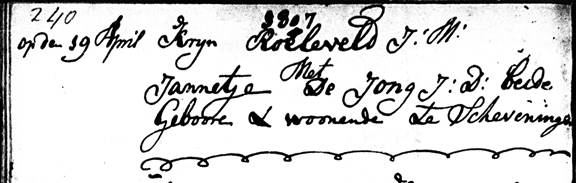 240
1807
op de 19 April Kryn Roeleveld J: M:
Met
Jannetje De Jong J: D: beide
Geboore & woonende te Scheveninge